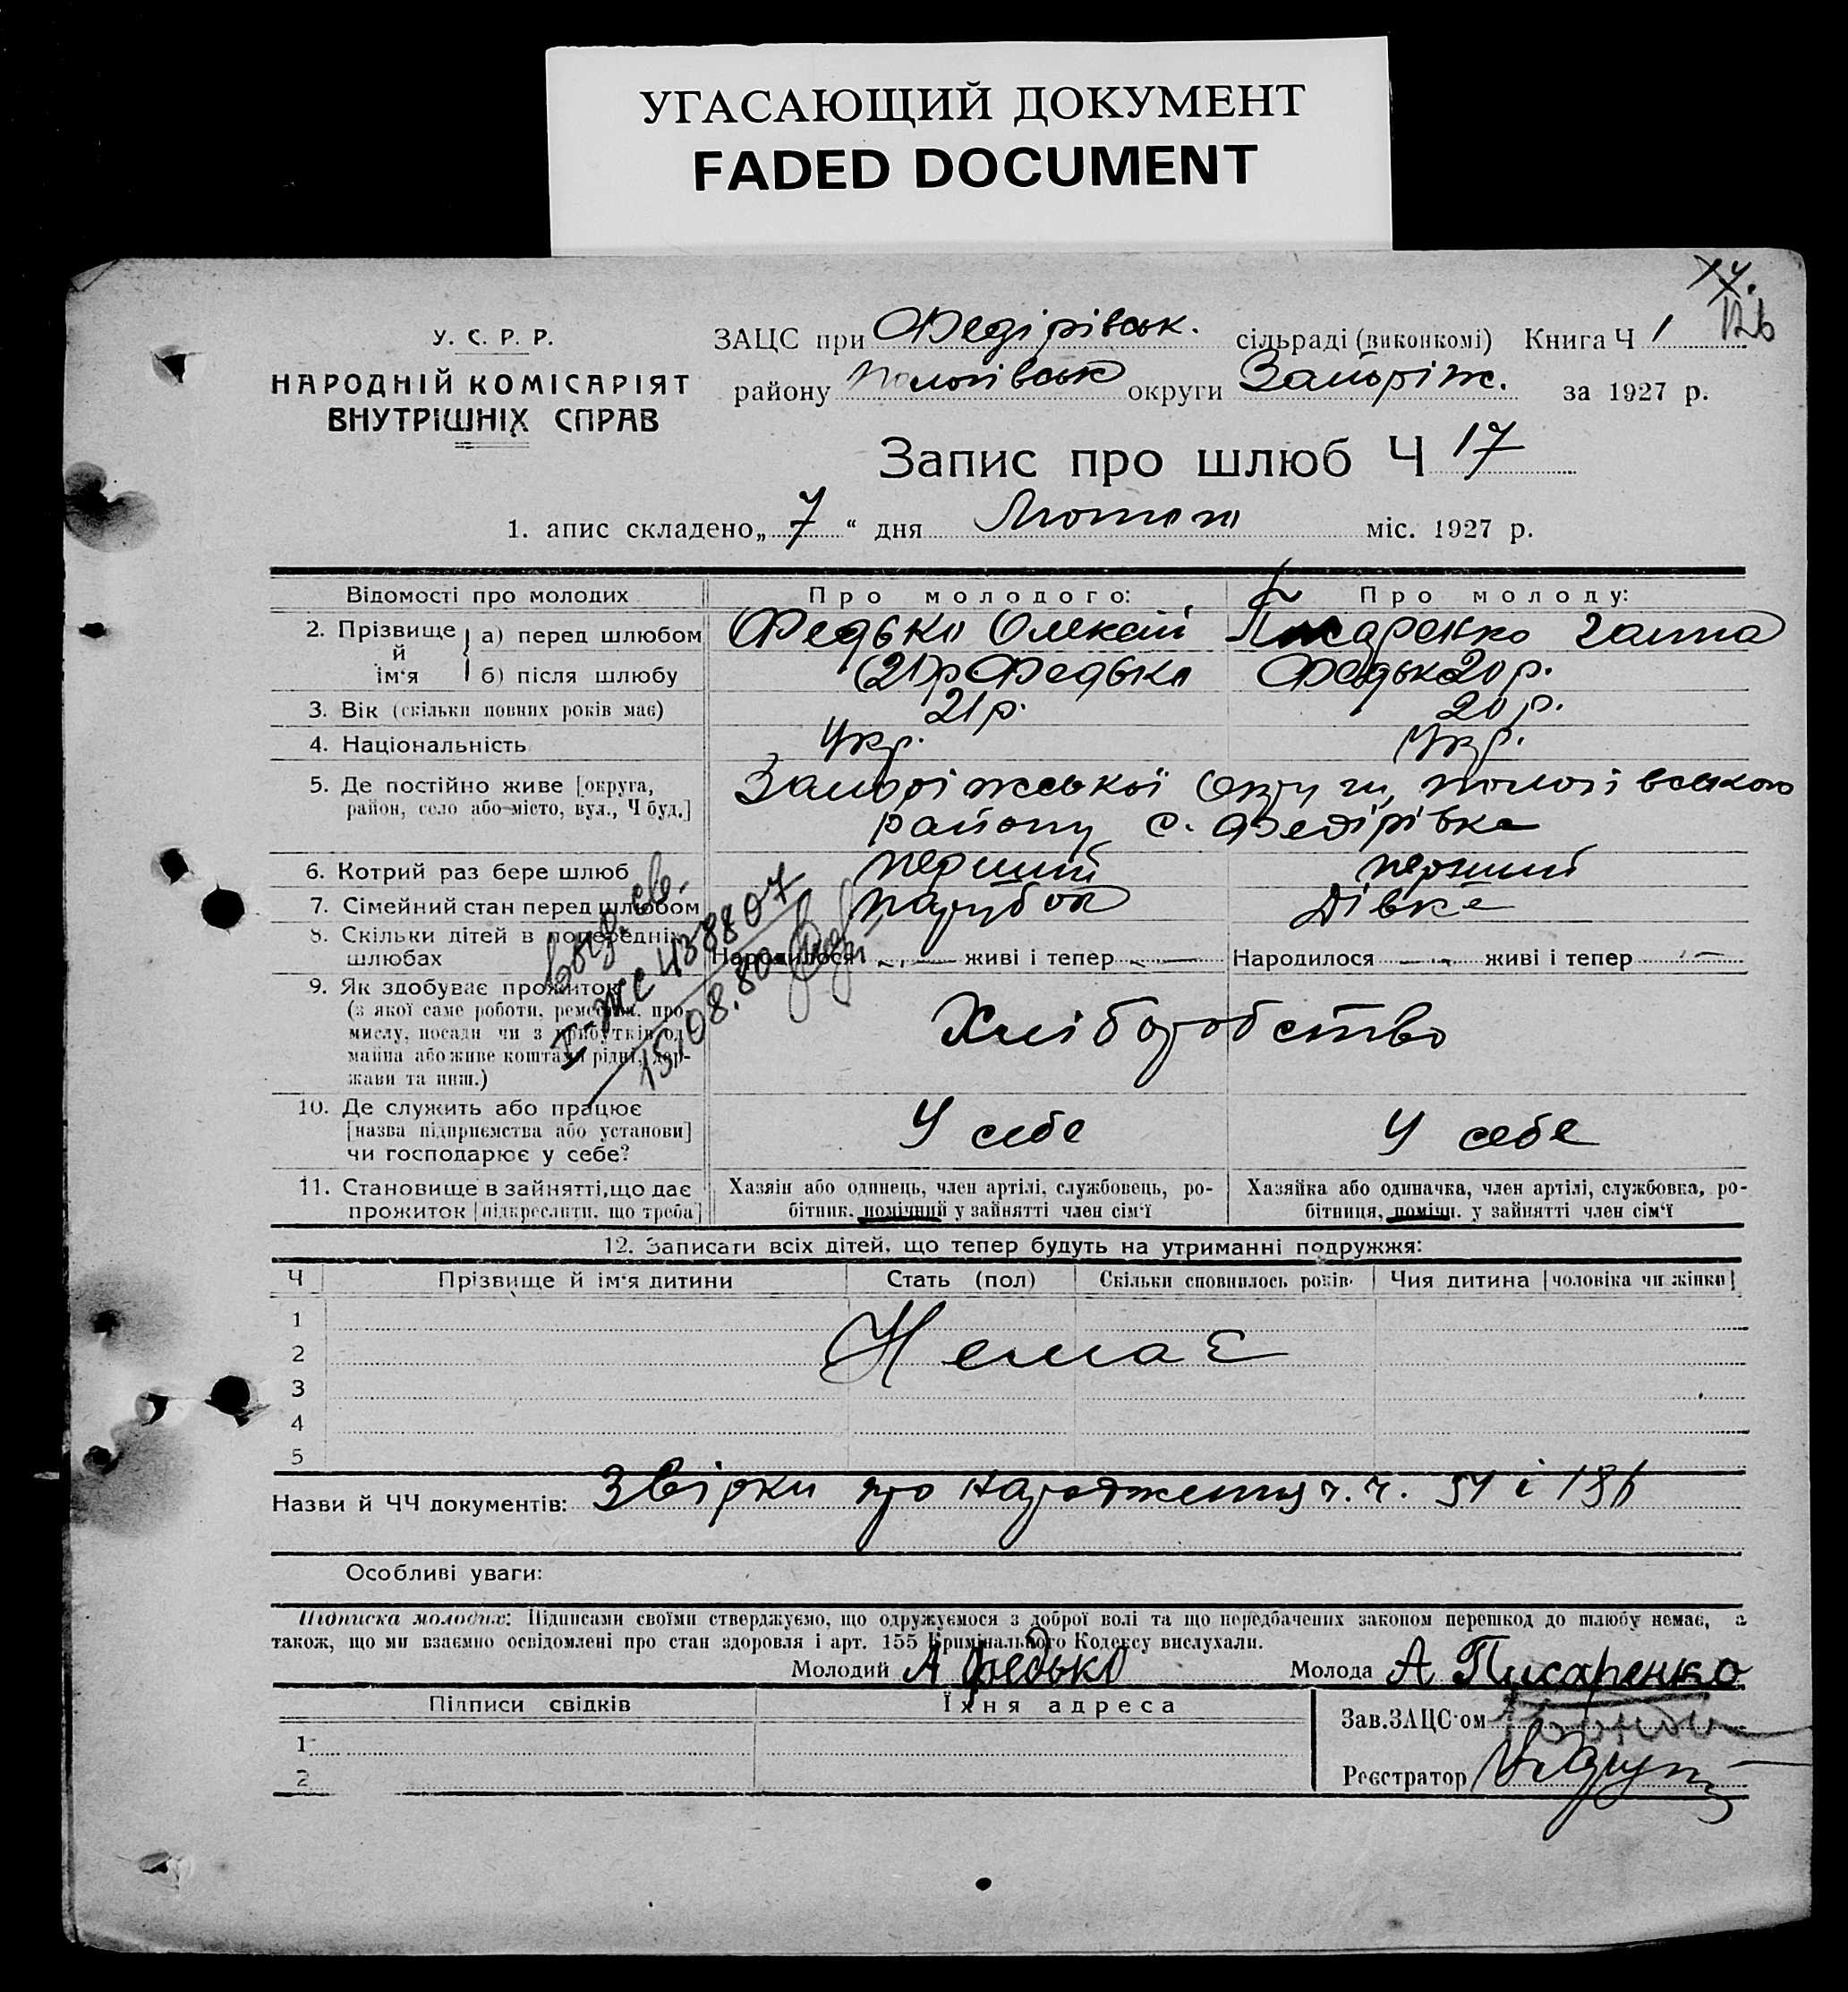 УГАСАЮЩИЙ ДОКУМЕНТ
FADED DOCUMENT
У. С. Р. Р.
НАРОДНІЙ КОМІСАРІЯТ
ВНУТРІШНІХ СПРАВ
ЗАЦС при Федірівськ. сільраді (виконкомі) Книга Ч 1
району Пологівськ округи Запоріж. за 1927 р.
Запис про шлюб Ч 17
1. апис складено „ 7 “ дня Лютого міс. 1927 р.
Відомості про молодих Про молодого: Про молоду:
2. Прізвище й ім'я а) перед шлюбом Федько Олексій Писаренко Ганна
б) після шлюбу (21)р Федько Федько 20 р.
3. Вік (скільки повних років має) 21 р. 20 р.
4. Національність Укр. Укр.
5. Де постійно живе [округа, район, село або місто, вул., Ч буд.] Запоріжської Округи, пологівського
району с. Федірівка
6. Котрий раз бере шлюб перший перший
7. Сімейний стан перед шлюбом парубок Дівка
8. Скільки дітей в попередніх шлюбах Народилося — живі і тепер — Народилося — живі і тепер —
Выд. св.
І-ЖС 438807
15.08.80
9. Як здобуває прожиток
(з якої саме роботи, ремества, про-
мислу, посади чи з прибутків од
майна або живе коштами рідні, дер-
жави та инш.)
Хліборобство
10. Де служить або працює
[назва підприємства або установи]
чи господарює у себе?
У себе У себе
11. Становище в зайнятті, що дає
прожиток [підкреслити, що треба]
Хазяїн або одинець, член артілі, службовець, ро-
бітник, помічний у зайнятті член сім'ї
Хазяйка або одиначка, член артілі, службовка, ро-
бітниця, помічн. у зайнятті член сім'ї
12. Записати всіх дітей, що тепер будуть на утриманні подружжя:
Ч Прізвище й ім'я дитини Стать (пол) Скільки сповнилось років Чия дитина [чоловіка чи жінки]
1
2 Немає
3
4
5
Назви й ЧЧ документів: Звірки про народження ч. ч. 54 і
Особливі уваги:
Підписка молодих: Підписами своїми стверджуємо, що одружуємося з доброї волі та що передбачених законом перешкод до шлюбу немає, а
також, що ми взаємно освідомлені про стан здоровля і арт. 155 Кримінального Кодексу вислухали.
Молодий А Федько Молода А Писаренко
Підписи свідків Їхня адреса
Зав. ЗАЦС'ом
1
Реєстратор
2